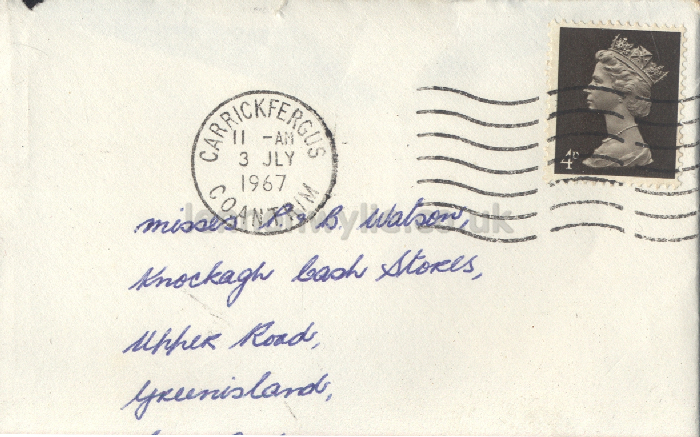 CARRICKFERGUS
11 - AM
3 JLY
1967
CO ANTRIM
4D
Misses R & B. Watson,
Knockagh Cash Stores,
Upper Road,
Greenisland,